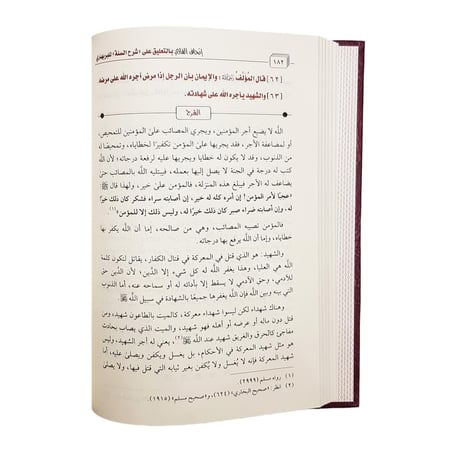 إتحاف القاري بالتعليق على «شرح السنة» للبربهاري
١٨٢
[٦٢] قال المؤلف رحمه الله: والإيمان بأن الرجل إذا مرض آجره الله على مرضه.
[٦٣] والشهيد يأجره الله على شهادته.
الشرح
الله لا يضيع أجر المؤمنين، ويجري المصائب على المؤمنين للتمحيص،
أو لمضاعفة الأجر، فقد يجريها على المؤمنين تكفيرًا لخطاياه، وتمحيصًا له
من الذنوب، وقد لا يكون له خطايا ويجريها عليه لرفعة درجاته؛ لأن الله
كتب له درجة في الجنة لا يصل إليها بعمله، فيبتليه الله بالمصائب حتى
يضاعف له الأجر فيبلغ هذه المنزلة، فالمؤمن على خير، ولهذا قال ﷺ
«عجبًا لأمر المؤمن! إن أمره كله له خير، إن أصابته سراء فشكر كان ذلك خير
له، وإن أصابته ضراء صبر كان ذلك خيرًا له، وليس ذلك إلا للمؤمن»(١).
فالمؤمن تصيبه المصائب، وهي من صالحه، إما أن الله يكفر بها
خطاياه، وإما أن الله يرفع بها درجاته.
والشهيد: هو الذي قتل في المعركة في قتال الكفار، يقاتل لتكون كلمة
الله هي العليا، وهذا يغفر الله له كل شيء إلا الدَّين؛ لأن الدَّين حق
للآدمي، وحق الآدمي لا يسقط إلا بأدائه له أو سماحه عنه، أما الذنوب
التي بينه وبين الله فإن الله يغفرها جميعًا بالشهادة في سبيل الله
وهناك شهداء لكن ليسوا شهداء معركة، كالميت بالطاعون شهيد، ومن
قتل دون ماله أو عرضه أو أهله فهو شهيد، والميت الذي يصاب بحادث
مفاجئ كالحرق والغريق شهيد عند الله(٢)، يعني له أجر الشهيد، وليس
هو مثل شهيد المعركة في الأحكام، بل يغسل ويكفن ويصلى عليه، أما
شهيد المعركة فإنه لا يُغسل ولا يكفن بغير ثيابه التي قتل فيها، ولا يصلى
(١) رواه مسلم (٢٩٩٩).
(٢) انظر: «صحيح البخاري» (٦٢٤)، و«صحيح مسلم» (١٩١٥).